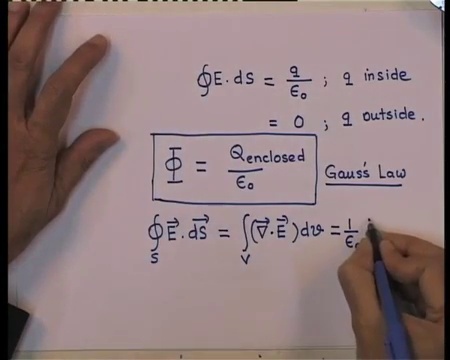 ∮E.dS = q/ε₀ ; q inside
= 0 ; q outside.
Φ = Qenclosed/ε₀ Gauss's Law
∮_S E⃗.dS⃗ = ∫_V (∇⃗.E⃗)dv = 1/ε₀